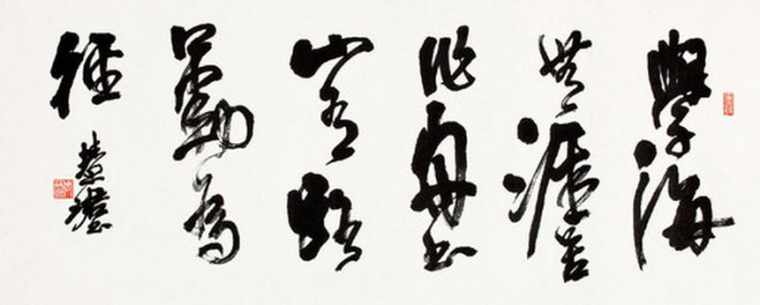 學海
無涯苦
作舟書
山有路
勤為
徑